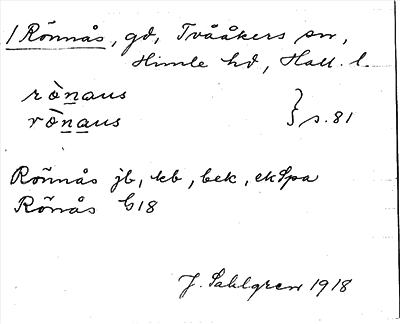 1 Rönnås, gd, Tvååkers sn,
Himle hd, Hall. l.
rònaus
rònaus } s. 81
Rönnås jb, kb, bek, ekSpa
Rönås G18
J. Sahlgren 1918